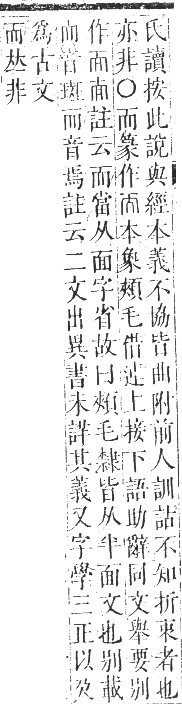 氏讀按此說與經本義不協皆曲附前人訓詁不知折衷者也
亦非○而篆作而本象頰毛借爲上接下語助辭同文舉要別
作而而註云而當从面字省故曰頰毛䫇皆从半面文也別載
而音斑而音焉註云二文出異書未詳其義又字學三正以
爲古文
而並非